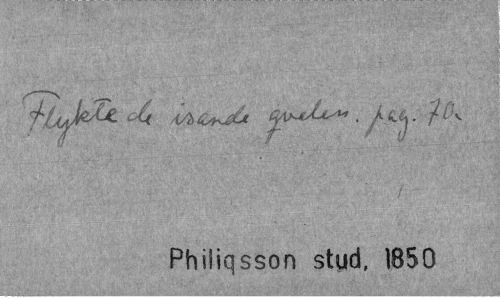 Flykte de isande qvalen. pag. 70.
Philiqsson stud, 1850